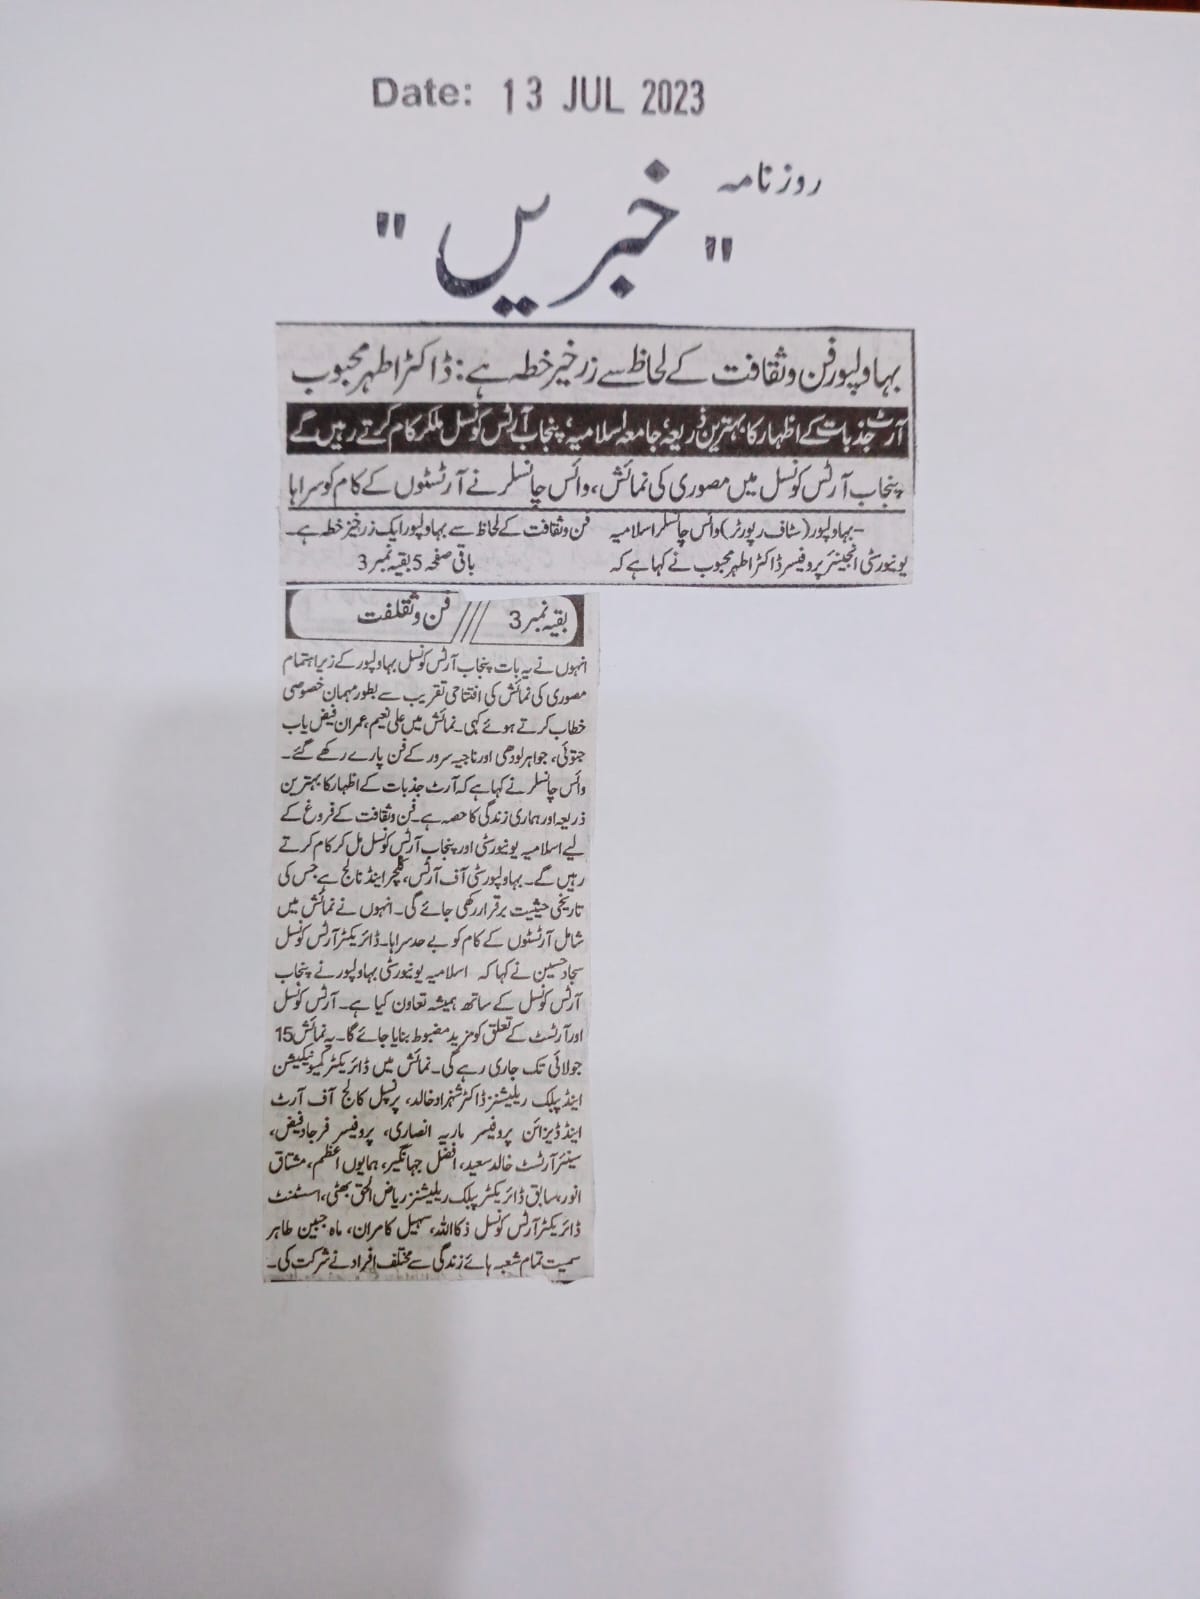 Date: 13 JUL 2023
روزنامہ
"خبریں"
بہاولپور فن و ثقافت کے لحاظ سے زرخیز خطہ ہے: ڈاکٹر اطہر محبوب
آرٹ جذبات کے اظہار کا بہترین ذریعہ، جامعہ اسلامیہ، پنجاب آرٹس کونسل ملکر کام کرتے رہیں گے
پنجاب آرٹس کونسل میں مصوری کی نمائش، وائس چانسلر نے آرٹسٹوں کے کام کو سراہا
بہاولپور (سٹاف رپورٹر) وائس چانسلر اسلامیہ
یونیورسٹی انجینئر پروفیسر ڈاکٹر اطہر محبوب نے کہا ہے کہ
فن و ثقافت کے لحاظ سے بہاولپور ایک زرخیز خطہ ہے۔
باقی صفحہ 5 بقیہ نمبر 3
بقیہ نمبر 3 /// فن و ثقلفت
انہوں نے یہ بات پنجاب آرٹس کونسل بہاولپور کے زیر اہتمام
مصوری کی نمائش کی افتتاحی تقریب سے بطور مہمان خصوصی
خطاب کرتے ہوئے کہی۔ نمائش میں علی نعیم، عمران فیض یاب
جتوئی، جواہر لودھی اور ناجیہ سرور کے فن پارے رکھے گئے۔
وائس چانسلر نے کہا ہے کہ آرٹ جذبات کے اظہار کا بہترین
ذریعہ اور ہماری زندگی کا حصہ ہے۔ فن و ثقافت کے فروغ کے
لیے اسلامیہ یونیورسٹی اور پنجاب آرٹس کونسل مل کر کام کرتے
رہیں گے۔ بہاولپور سٹی آف آرٹس، کلچر اینڈ نالج ہے جس کی
تاریخی حیثیت برقرار رکھی جائے گی۔ انہوں نے نمائش میں
شامل آرٹسٹوں کے کام کو بے حد سراہا۔ ڈائریکٹر آرٹس کونسل
سجاد حسین نے کہا کہ اسلامیہ یونیورسٹی بہاولپور نے پنجاب
آرٹس کونسل کے ساتھ ہمیشہ تعاون کیا ہے۔ آرٹس کونسل
اور آرٹسٹ کے تعلق کو مزید مضبوط بنایا جائے گا۔ یہ نمائش 15
جولائی تک جاری رہے گی۔ نمائش میں ڈائریکٹر کمیونیکیشن
اینڈ پبلک ریلیشنز ڈاکٹر شہزاد خالد، پرنسپل کالج آف آرٹ
اینڈ ڈیزائن پروفیسر ماریہ انصاری، پروفیسر فرجاد فیض،
سینئر آرٹسٹ خالد سعید، افضل جہانگیر، ہمایوں اعظم، مشتاق
انور، سابق ڈائریکٹر پبلک ریلیشنز ریاض الحق بھٹی، اسسٹنٹ
ڈائریکٹر آرٹس کونسل ذکااللہ، سہیل کامران، ماہ جبین طاہر
سمیت تمام شعبہ ہائے زندگی سے مختلف افراد نے شرکت کی۔